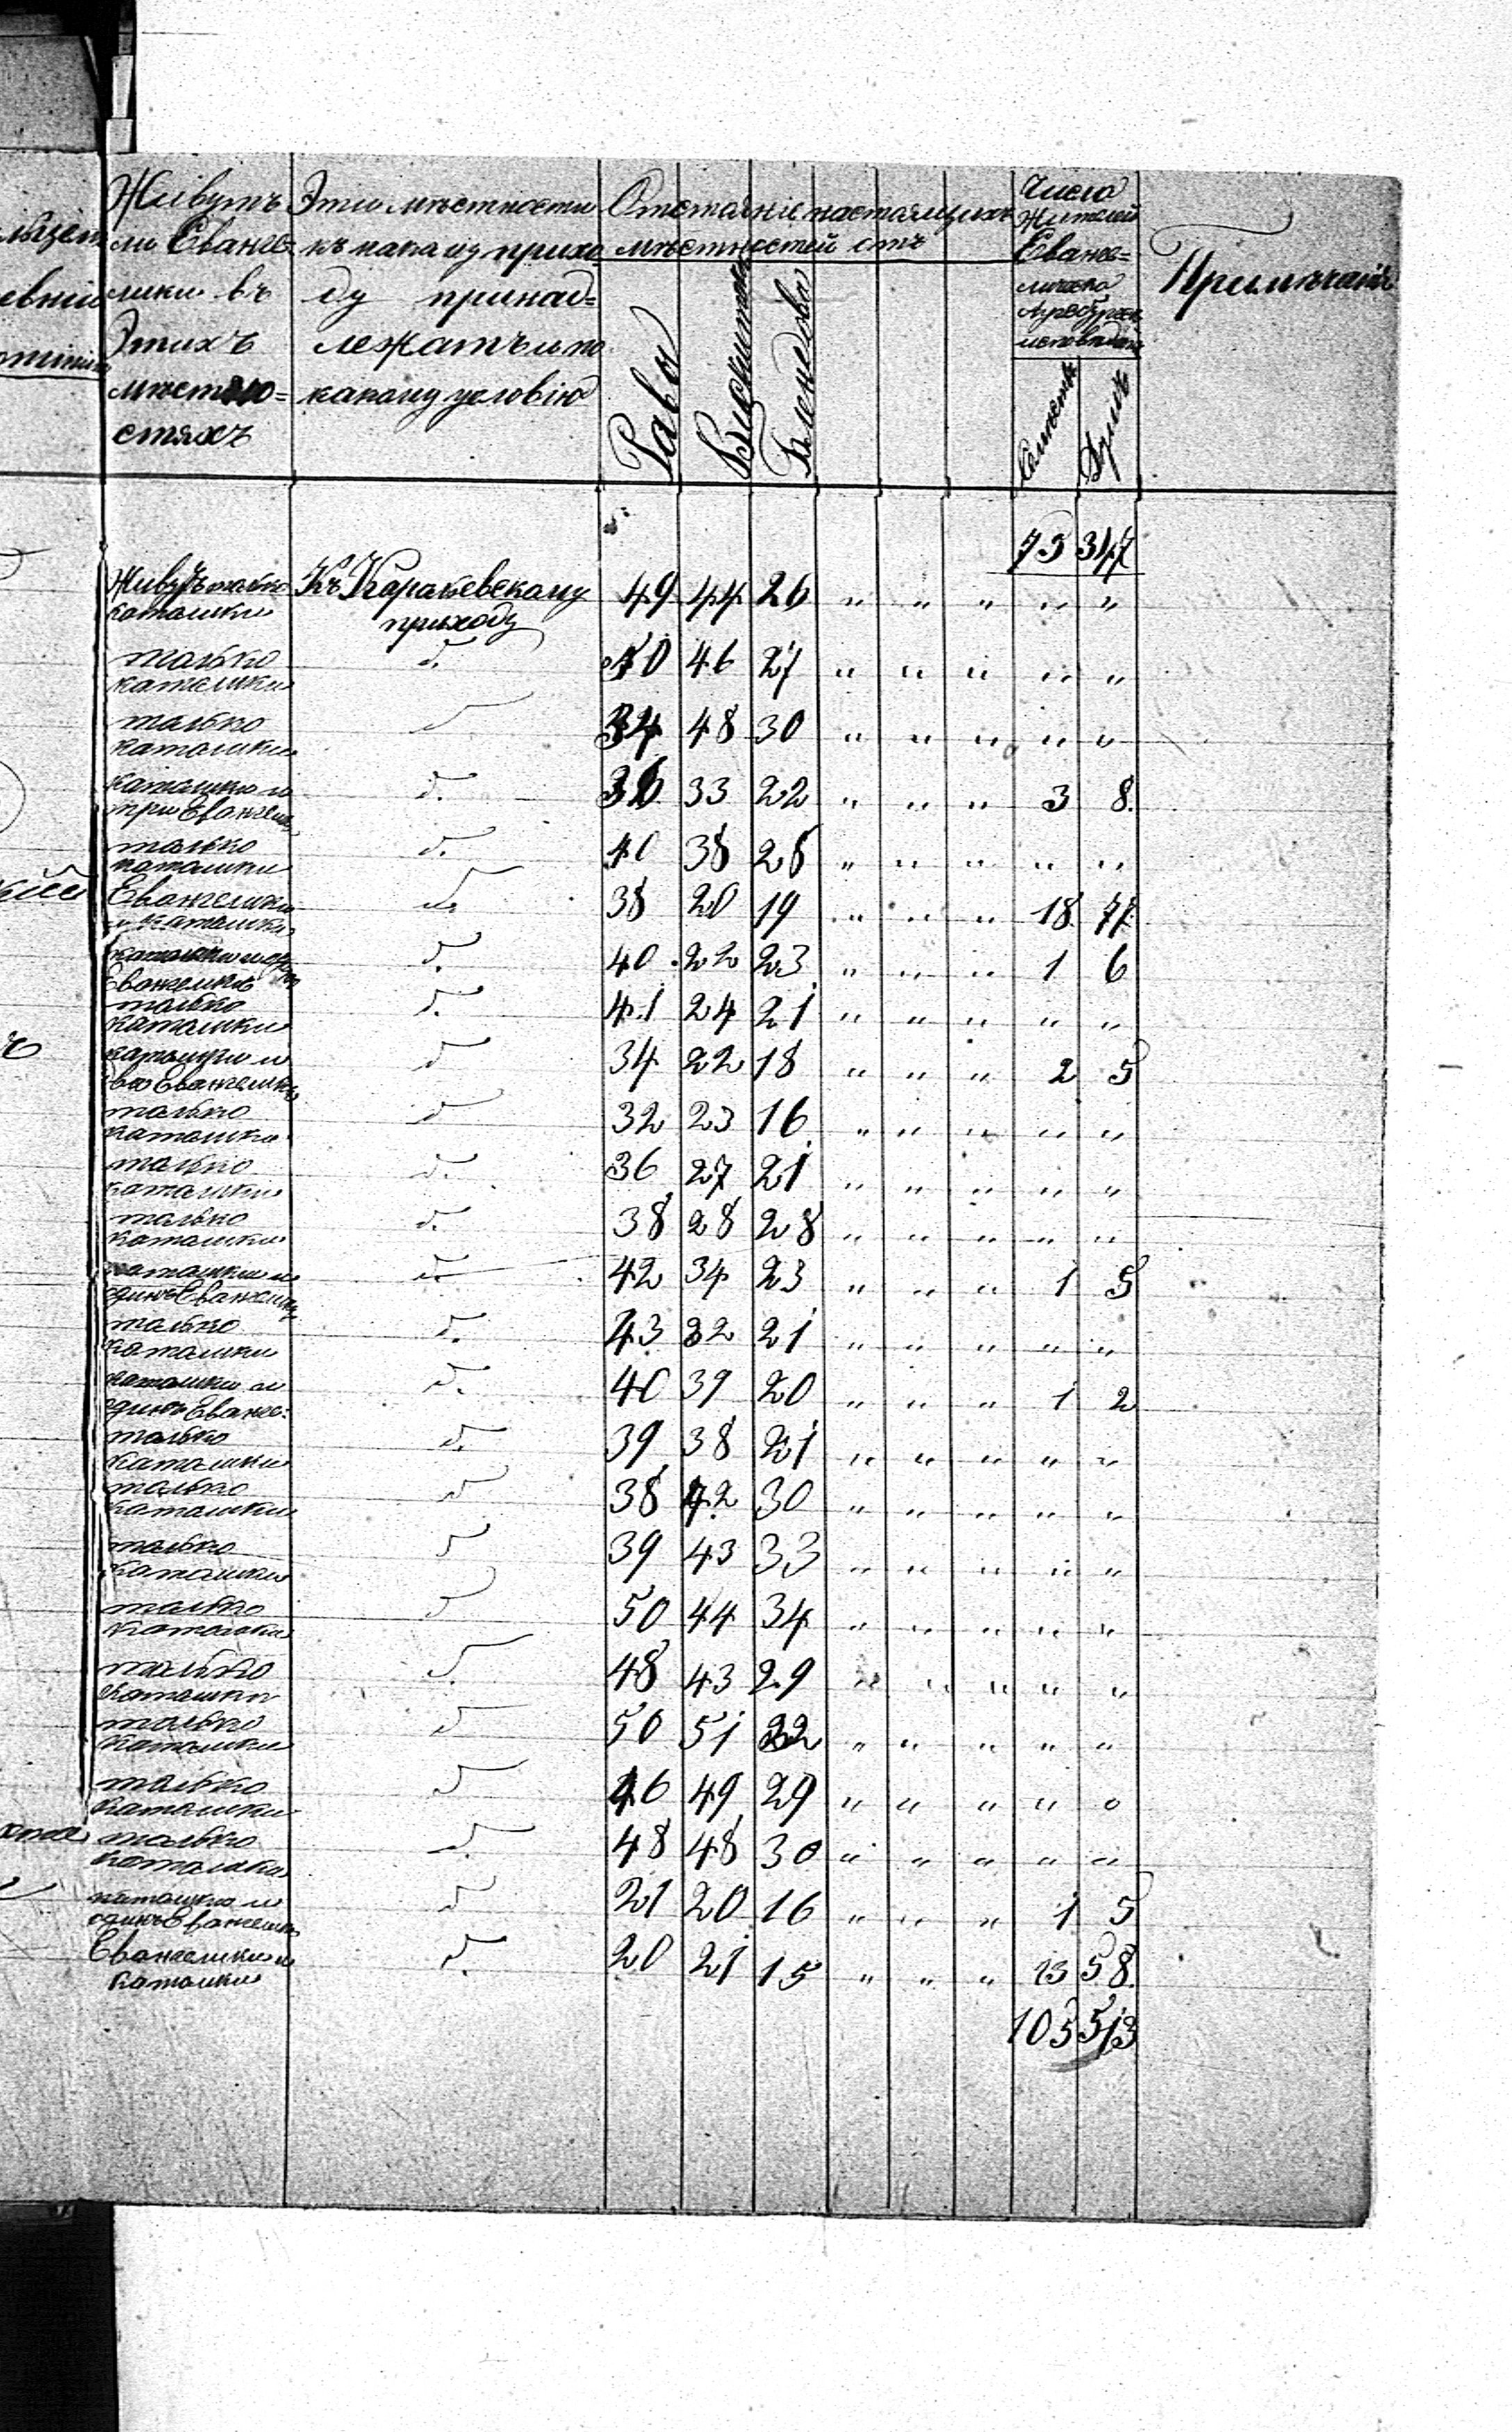 Живутъ
ли Еванге-
лики въ
этихъ
мѣстно=
стяхъ
Эти мѣстности
къ какому прихо
ду принад=
лежатъ и по
какому условію
Отстояніе настоящихъ
мѣстностей отъ
Рава
Число
Жителей
Еванге=
исповѣданія
Душъ
Примѣчанія
73 347
Живутъ только Къ приходу 49 44 26 " " " " "
католики
только д. 40 46 27 " " " " "
католики
только д 34 48 30 " " " " "
католики
католики и д. 36 33 22 " " " 3 8.
три Евангелика
только д. 40 38 28 " " " " "
католики
Евангелики д. 38 20 19 " " " 18 77
и католики
католики и д. 40 22 23 " " " 1 6
Евангеликъ
только д. 41 24 21 " " " " "
католики
католики и д 34 22 18 " " " 2 5
два Евангелика
только д 32 23 16 " " " " "
католики
только д. 36 27 21 " " " " "
католики
только д. 38 28 28 " " " " "
католики
католики и д. 42 34 23 " " " 1 5
одинъ Евангеликъ
только д. 43 32 21 " " " " "
католики
католики и д. 40 39 20 " " " 1 2
одинъ Еванге:
только д. 39 38 21 " " " " "
католики
только д 38 42 30 " " " " "
католики
только д 39 43 33 " " " " "
католики
только д 50 44 34 " " " " "
католики
только д. 48 43 29 " " " " "
католики
только д 50 51 22 " " " " "
католики
только д 46 49 29 " " " " "
католики
только д. 48 48 30 " " " " "
католики
католики и д 21 20 16 " " " 1 5
одинъ Евангеликъ
Евангелики и д. 20 21 15 " " " 13 58.
католики
105 513